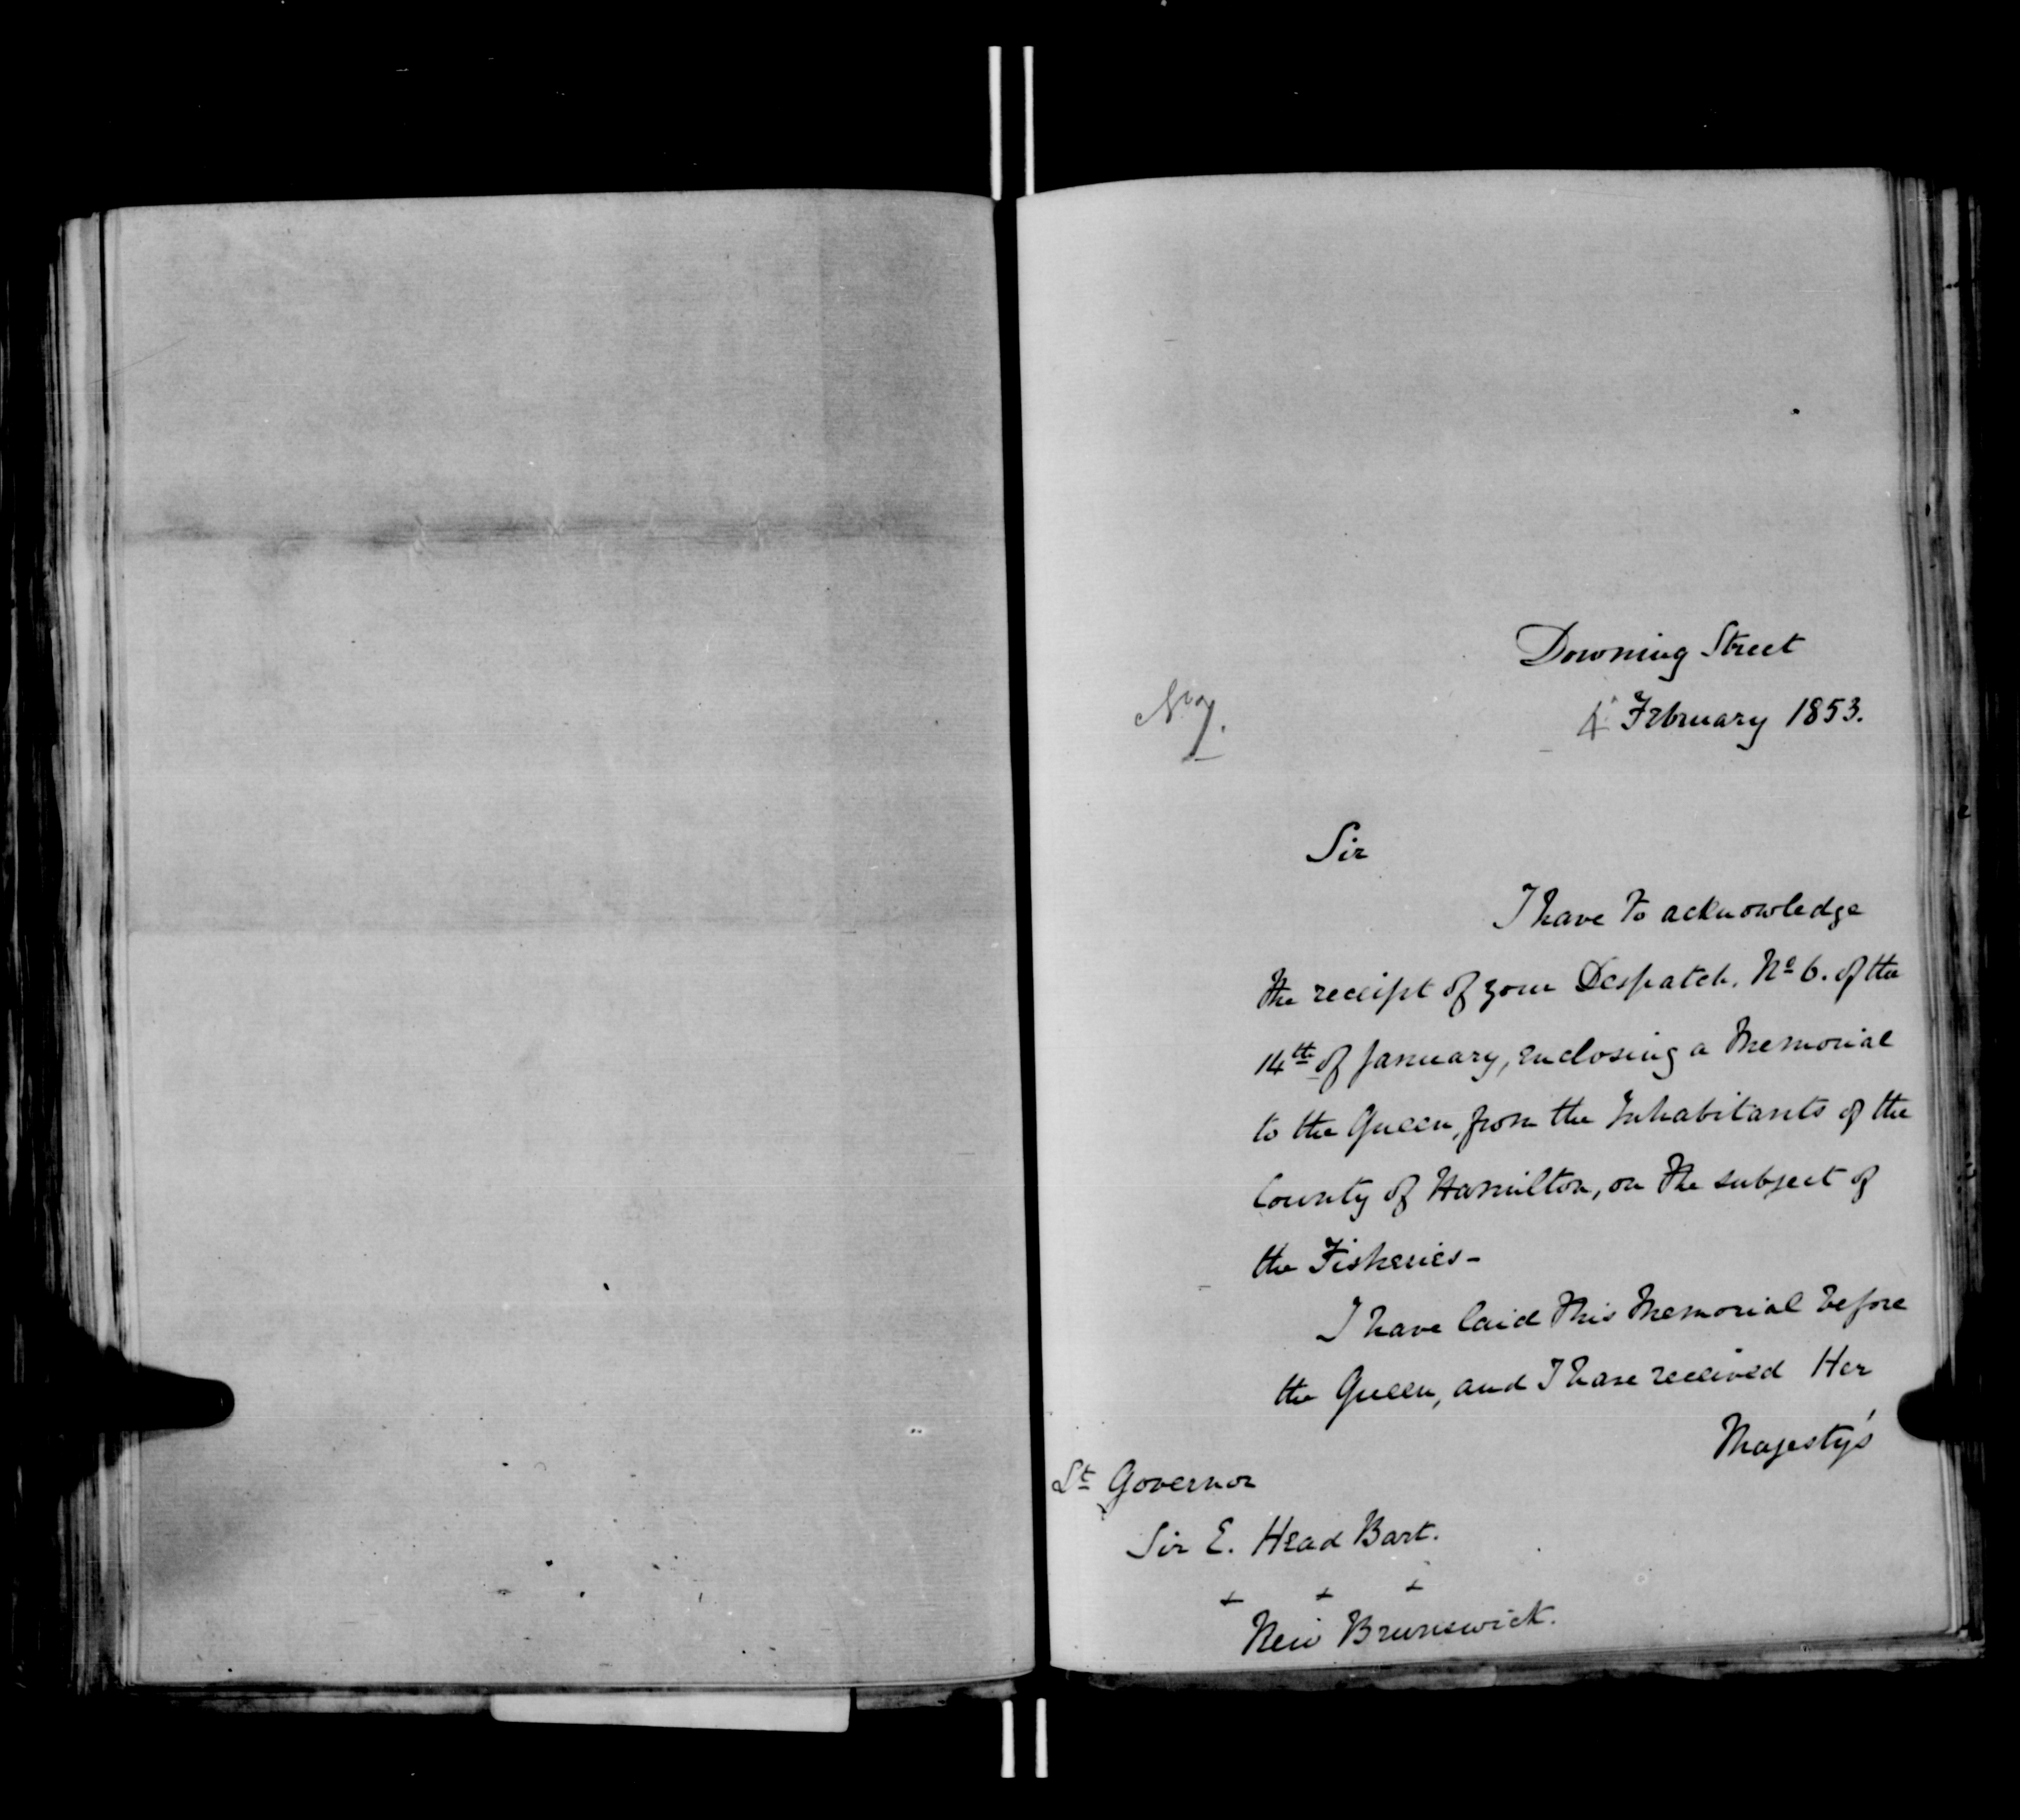 Downing Street
No 7.
4 February 1853.
Sir
I have to acknowledge
the receipt of your Despatch. No 6. of the
14th of January, enclosing a Memorial
to the Queen, from the Inhabitants of the
County of Hamilton, on the subject of
the Fisheries -
I have laid this Memorial before
the Queen, and I have received Her
Majesty's
Lt Governor
Sir E. Head Bart.
+ + +
New Brunswick.